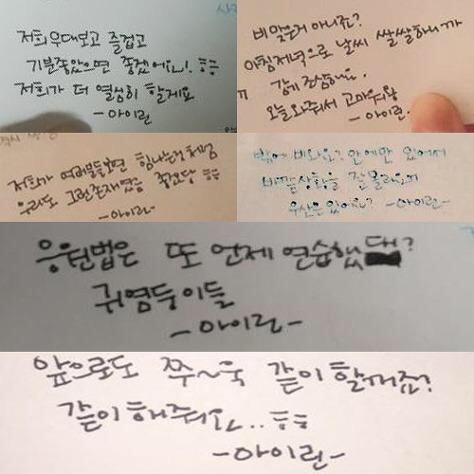 저희 무대보고 즐겁고
기분좋았으면 좋겠어요! ㅠㅠ
저희가 더 열심히 할게요
-아이린
비맞은거 아니죠?
아침저녁으로 날씨 쌀쌀하니까
감기 조심해요.
오늘와줘서 고마워용
-아이린.
저희가 여러분들보면 힘나는거처럼
우리도 그런존재였음 좋겠당 ㅠㅠ
-아이린-
밖에 비와요? 안에만 있어서
바깥상황을 잘 몰라요ㅠ
우산은있어요? -아이린-
응원법은 또 언제 연습했대?
귀염둥이들
-아이린-
앞으로도 쭈~욱 같이 할꺼죠?
같이해줘요.. ㅠㅠ
-아이린-